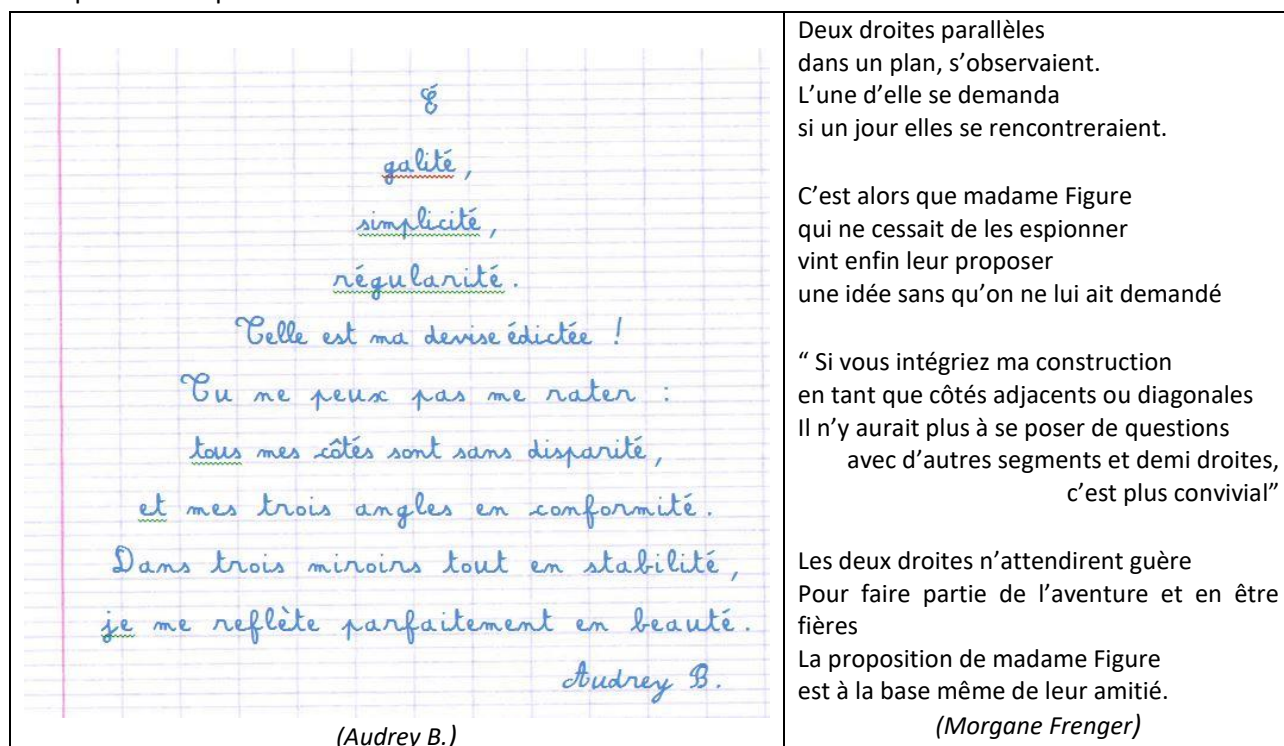 É
galité,
simplicité,
régularité.
Telle est ma devise édictée !
Tu ne peux pas me rater :
tous mes côtés sont sans disparité,
et mes trois angles en conformité.
Dans trois miroirs tout en stabilité,
je me reflète parfaitement en beauté.
Audrey B.
(Audrey B.)
Deux droites parallèles
dans un plan, s’observaient.
L’une d’elle se demanda
si un jour elles se rencontreraient.
C’est alors que madame Figure
qui ne cessait de les espionner
vint enfin leur proposer
une idée sans qu’on ne lui ait demandé
“ Si vous intégriez ma construction
en tant que côtés adjacents ou diagonales
Il n’y aurait plus à se poser de questions
avec d’autres segments et demi droites,
c’est plus convivial”
Les deux droites n’attendirent guère
Pour faire partie de l’aventure et en être
fières
La proposition de madame Figure
est à la base même de leur amitié.
(Morgane Frenger)